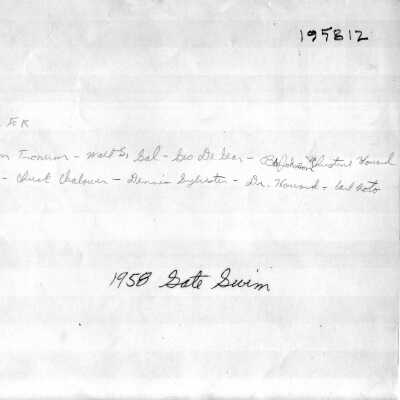 195812
n Fronum - Walt S, Gal - Geo De Gear - Bob Johnson Christine Howard
- Chuck Chalower - Dennis Sylvester - Dr. Howard - Carl Noto
1958 Gate Swim